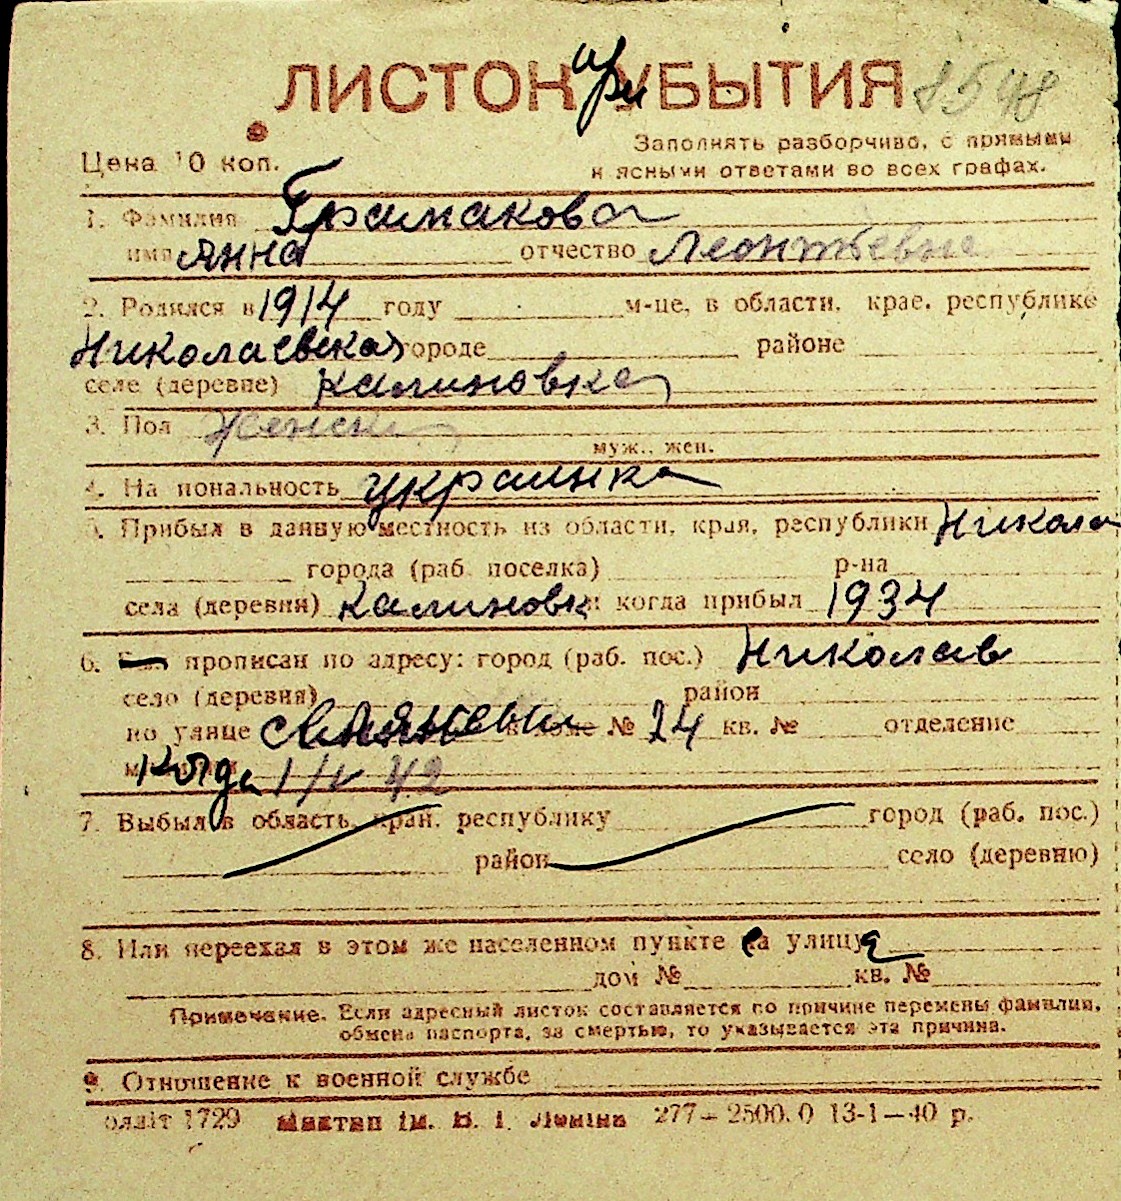 ЛИСТОК при УБЫТИЯ 8548
Цена 10 коп.
Заполнять разборчиво, с прямыми
и ясными ответами во всех графах.
1. Фамилия Грамакова
имя Анна отчество Леонтьевна
2. Родился в 1914 году м-це, в области, крае, республике
Николаевская городе районе
селе (деревне) Калиновка
3. Пол Женски
муж., жен.
4. На пональность украинка
5. Прибыл в данную местность из области, края, республики Никола
города (раб. поселка) р-на
села (деревни) Калиновк когда прибыл 1934
6. прописан по адресу: город (раб. пос.) Николаев
село (деревня) район
по улице № 24 кв. № отделение
Когда 1/V 42
7. Выбыл в область, край, республику город (раб. пос.)
район село (деревню)
8. Или переехал в этом же населенном пункте са улицу
дом № кв. №
Примечание. Если адресный листок составляется по причине перемены фамилии,
обмена паспорта, за смертью, то указывается эта причина.
9. Отношение к военной службе
блліт 1729 ім. В. І. Леніна 277—2500.0 13-1—40 р.